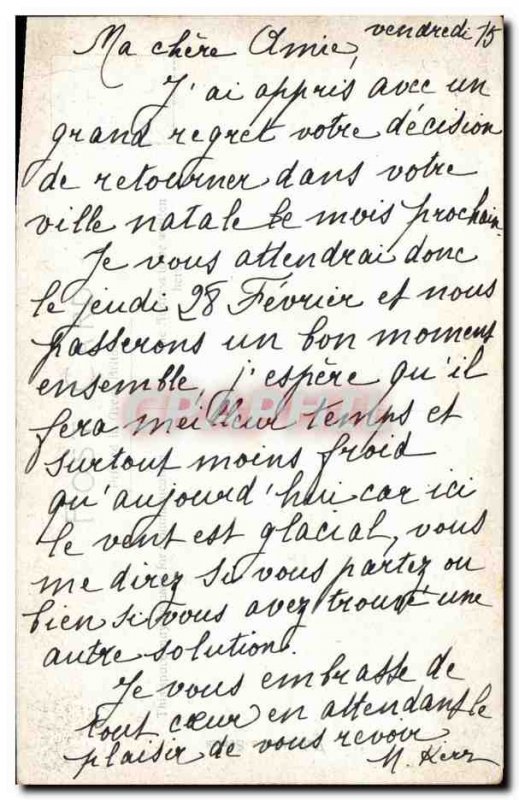 vendredi 15
Ma chère Amie,
J'ai appris avec un
grand regret votre décision
de retourner dans votre
ville natale le mois prochain.
Je vous attendrai donc
le jeudi 28 Février et nous
passerons un bon moment
ensemble, j'espère qu'il
fera meilleur temps et
surtout moins froid
qu'aujourd'hui car ici
le vent est glacial, vous
me direz si vous partez ou
bien si vous avez trouvé une
autre solution.
Je vous embrasse de
tout cœur en attendant le
plaisir de vous revoir
M.
POST CARD